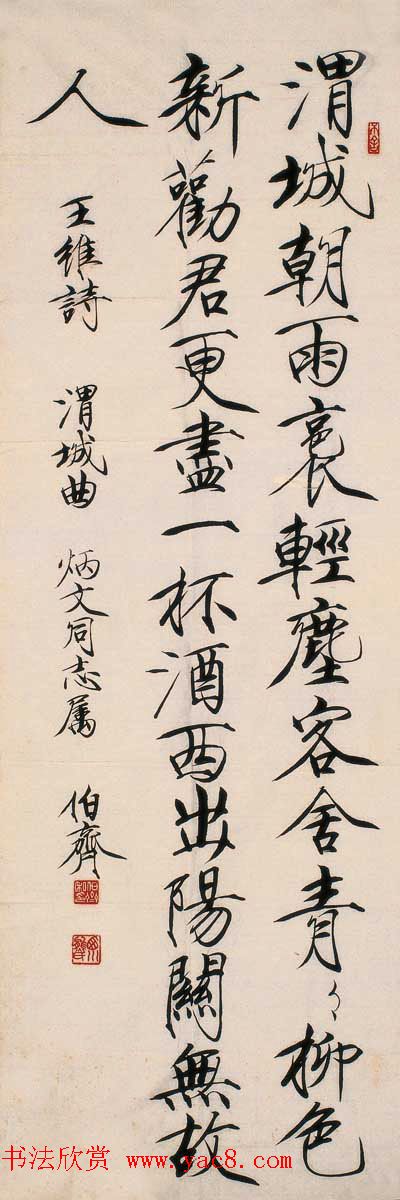 渭城朝雨裛輕塵客舍青〻柳色
新勸君更盡一杯酒西出陽關無故
人
王維詩 渭城曲 炳文同志属 伯齊
书法欣赏 www.yac8.com